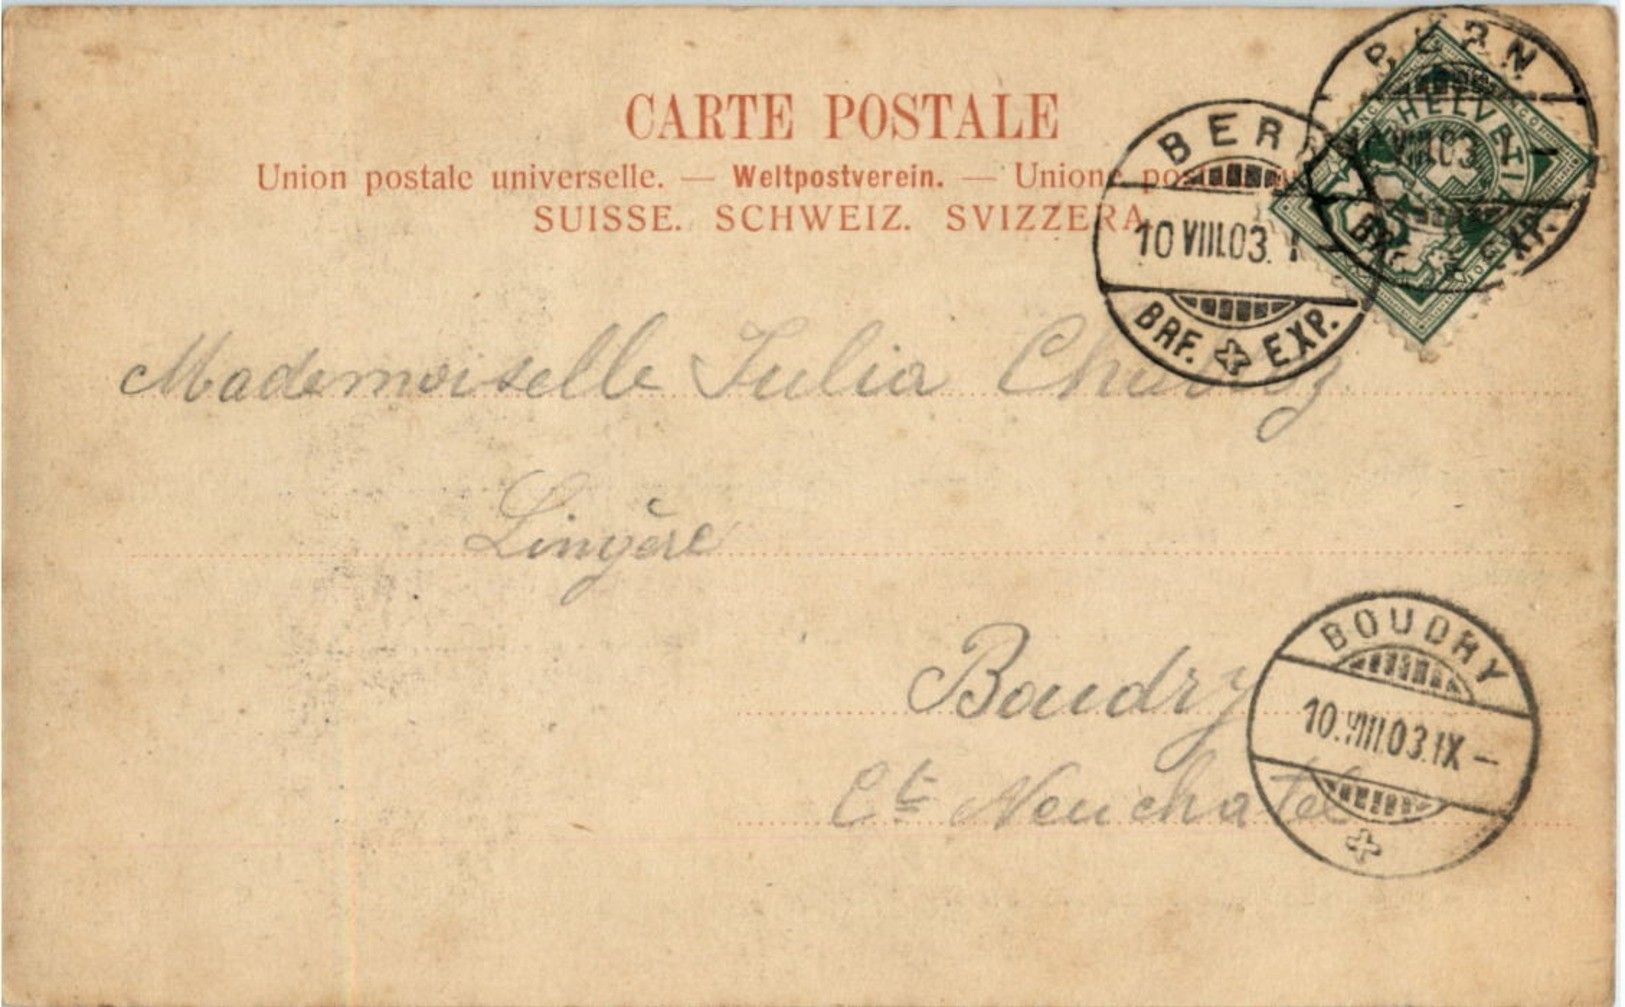 CARTE POSTALE
Union postale universelle. — Weltpostverein. — Unione
SUISSE. SCHWEIZ. SVIZZERA
BERN
10 VIII.03.
BRF. EXP.
HELVETIA
VIII.03
Mademoiselle Julia
Lingère
Boudry
Ct Neuchatel
BOUDRY
10.VIII.03.IX –